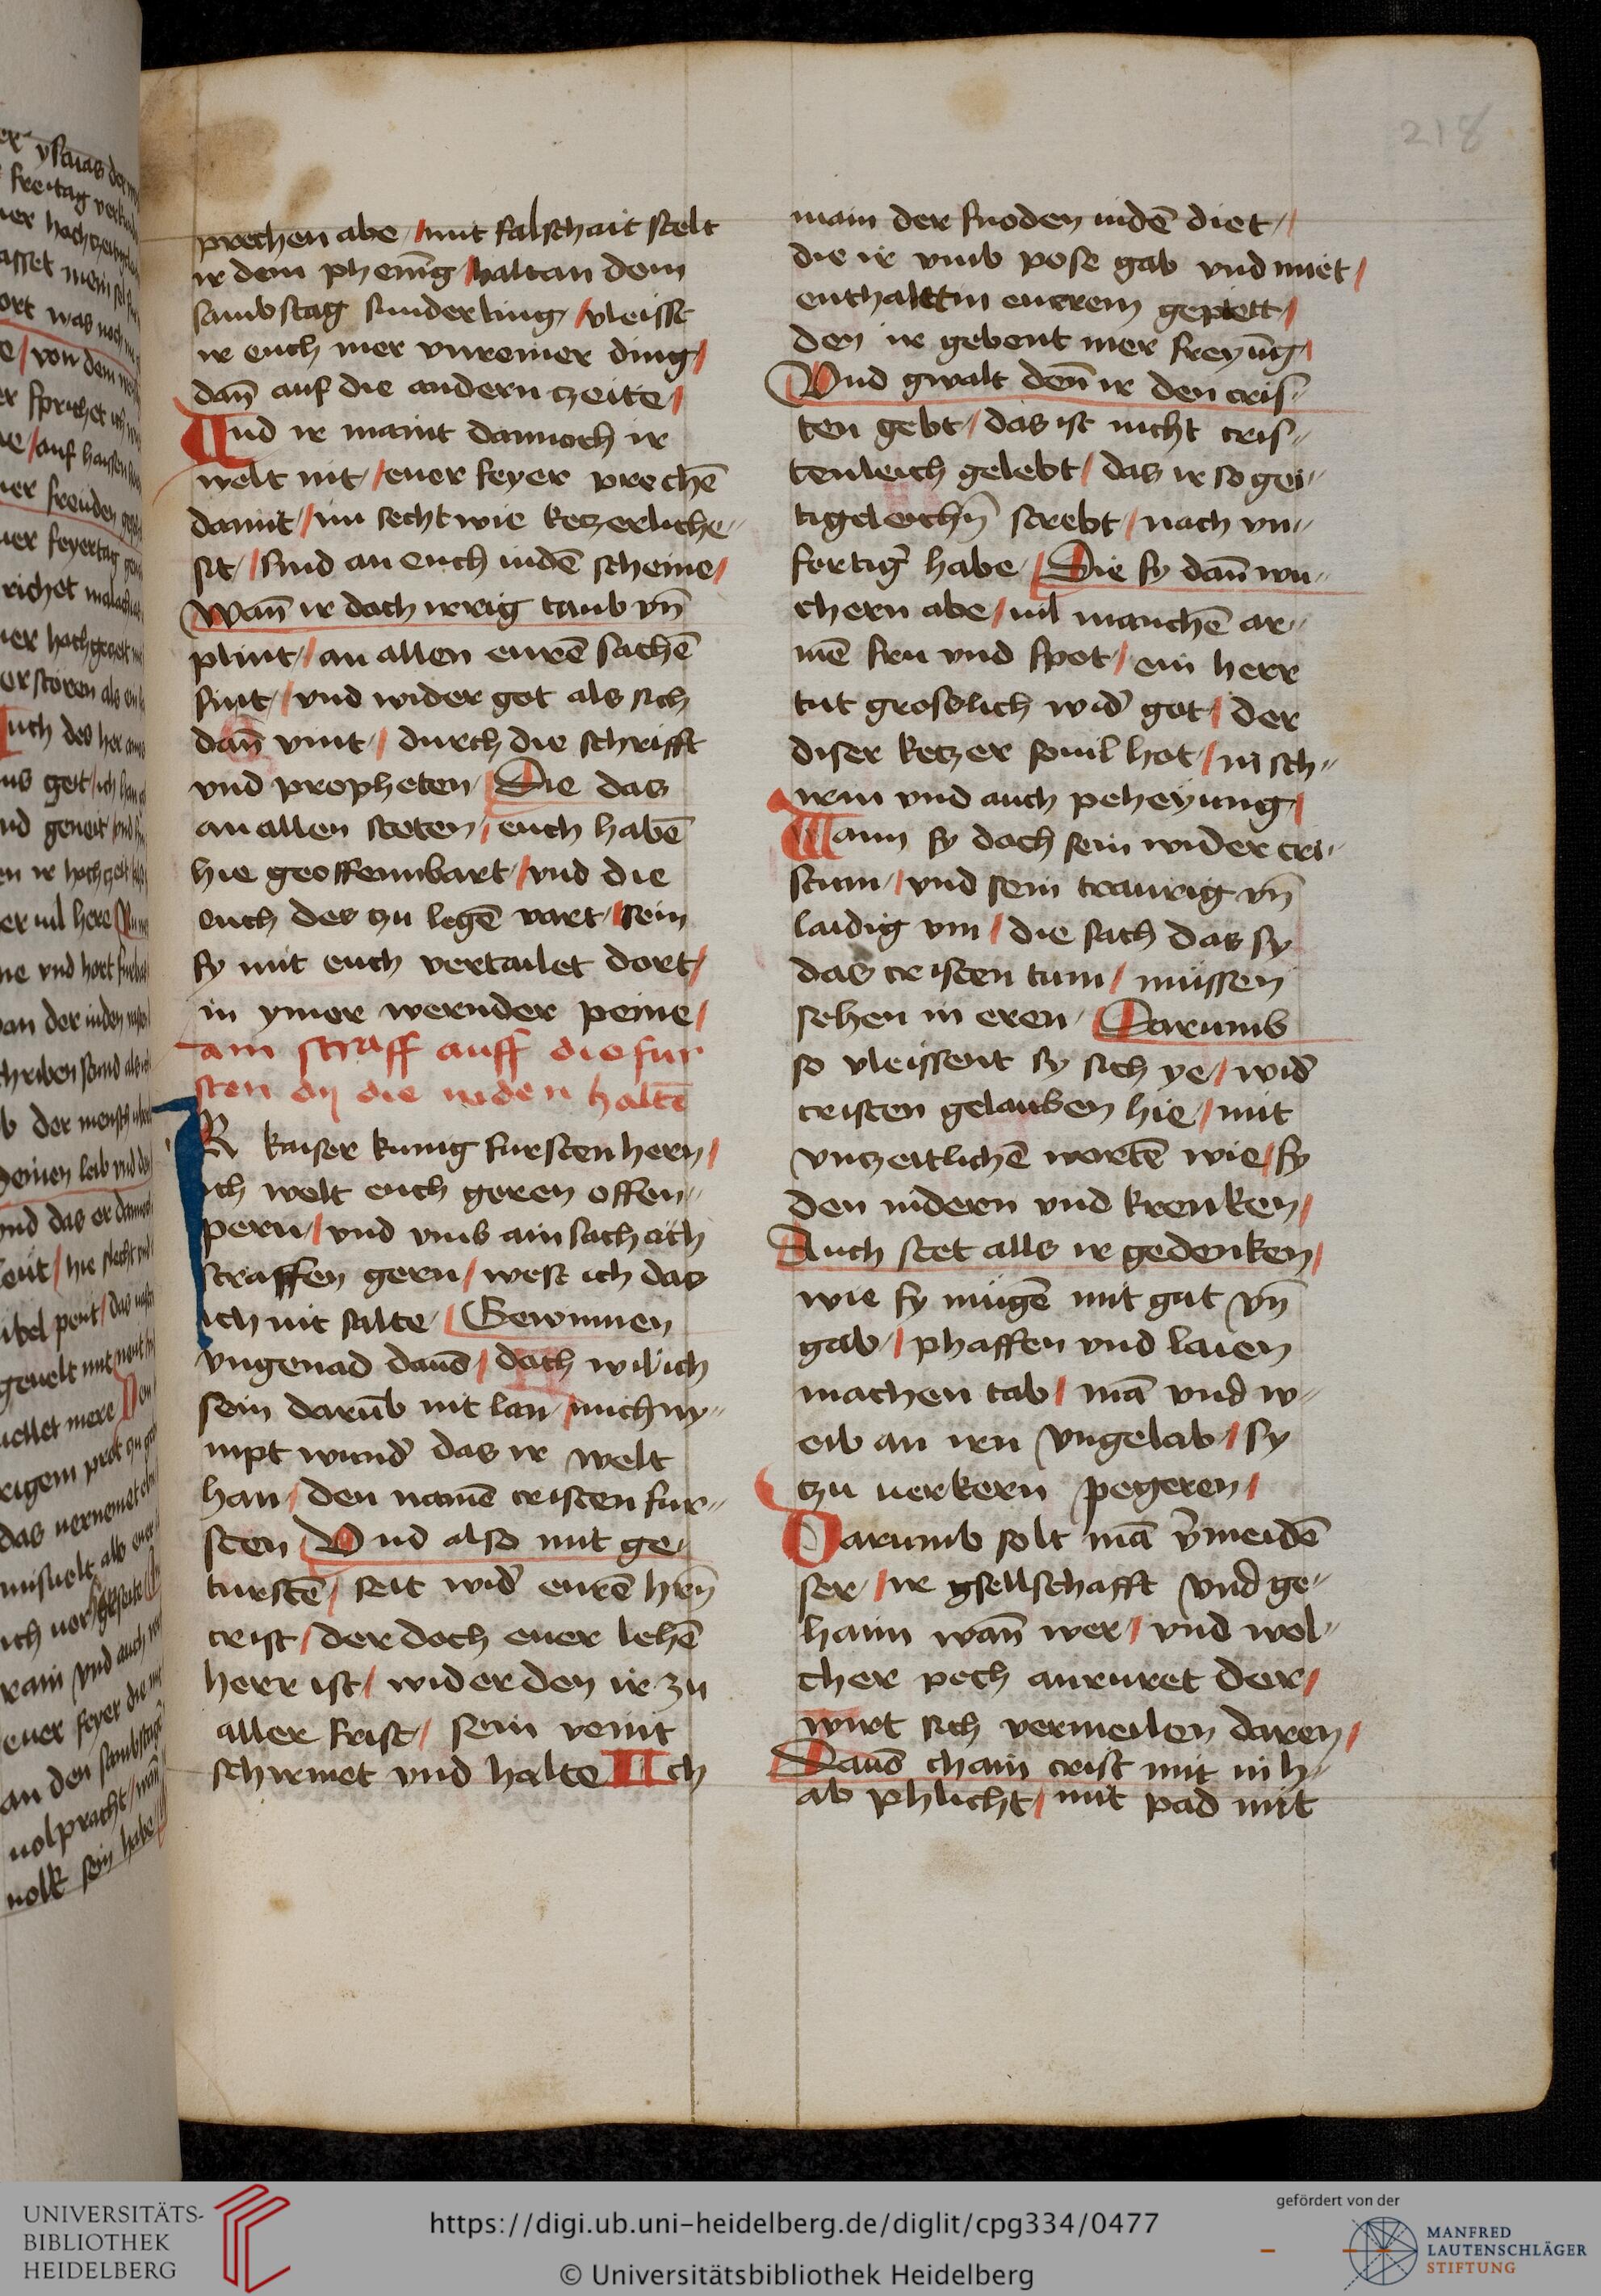 218
prechen abe / mit falschait stelt
ir dem phenīg / halt an dem
sambstag sunderling / vleisst
ir euch mer vnreiner ding /
dañ auf die andern zeite /
Und ir maint dannoch ir
welt nit / euer feyer prechē
damit / nu secht wie ketzerliche
sit / sind an euch iudē scheine /
Wañ ir doch irrig taub vñ
plint / an allen eurē sachē
sint / vnd wider got als sich
dañ vint / durch die schrifft
vnd propheten / Die das
an allen steten / euch habē
hie geoffennbart / vnd die
euch des zu legē vart / sein
sy mit euch vertailet dort /
in ymer wernder peine /
ain straff auff die fur
sten dy die iuden haltē
IR kaiser kunig fursten hern /
ich welt euch geren offen
pern / vnd vmb ain sach auch
straffen gern / west ich das
ich nit salte / Gewinnen
vngenad dauō / doch wil ich
sein darūb nit lan / mich ny
mpt wund' das ir welt
han / den namē cristen fur
sten / Vnd also mit ge
turstē / seit wid' eurē hrñ
crist / der doch euer lehē
herr ist / wider den ir zu
aller frist / sein veint
schirmet vnd halte Ich
main der snoden iudē diet /
die ir vmb pose gab vnd miet /
enthalt in eurrem gepiett /
den ir gebent mer freyūg /
Vnd gwalt deñ ir den cris
ten gebt / das ist nicht cris
tenleich gelebt / das ir so gei
tigeleichñ strebt / nach vn
fertig' habe / Die sy dañ wu
chern abe / vil manchē ar
mē fru vnd spot / ein herr
tut groslich wid' got / der
diser ketzer souil hot / in sch
irm vnd auch peheyung /
Wann sy doch sein wider cri
stum / vnd sein traurig vñ
laidig vm / die sach das sy
das cristen tum / müssen
sehen in eren / Darumb
so vleissent sy sich ye / wid'
cristen gelauben hie / mit
vnzeitlichē wortē wie / sy
den nidern vnd krenken /
Auch stet alls ir gedenken /
wie sy mügē mit gut vñ
gab / phaffen vnd laien
machen tab / mā vnd w
eib an irn vngelab / sy
zu uerkern pegeren /
Darumb solt mā v'meidē
ser / ir gsellschafft vnd ge
haim wañ wer / vnd wel
cher pech anruret der /
wirt sich vermeilen daren /
Dauō chain crist mit in h
ab phlicht / mit pad mit
UNIVERSITÄTS-
BIBLIOTHEK
HEIDELBERG
https://digi.ub.uni-heidelberg.de/diglit/cpg334/0477
© Universitätsbibliothek Heidelberg
gefördert von der
MANFRED
LAUTENSCHLÄGER
STIFTUNG